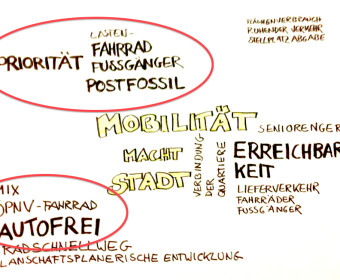 LASTEN-
PRIORITÄT FAHRRAD
FUSSGÄNGER
POSTFOSSIL
FLÄCHENVERBRAUCH
RUHENDER VERKEHR
STELLPLATZABGABE
MOBILITÄT
MACHT
STADT
SENIORENGER
VERBINDUNG
DER
QUARTIERE
ERREICHBAR
KEIT
LIEFERVERKEHR
FAHRRÄDER
FUSSGÄNGER
MIX
ÖPNV-FAHRRAD
AUTOFREI
RADSCHNELLWEG
LANSCHAFTSPLANERISCHE ENTWICKLUNG